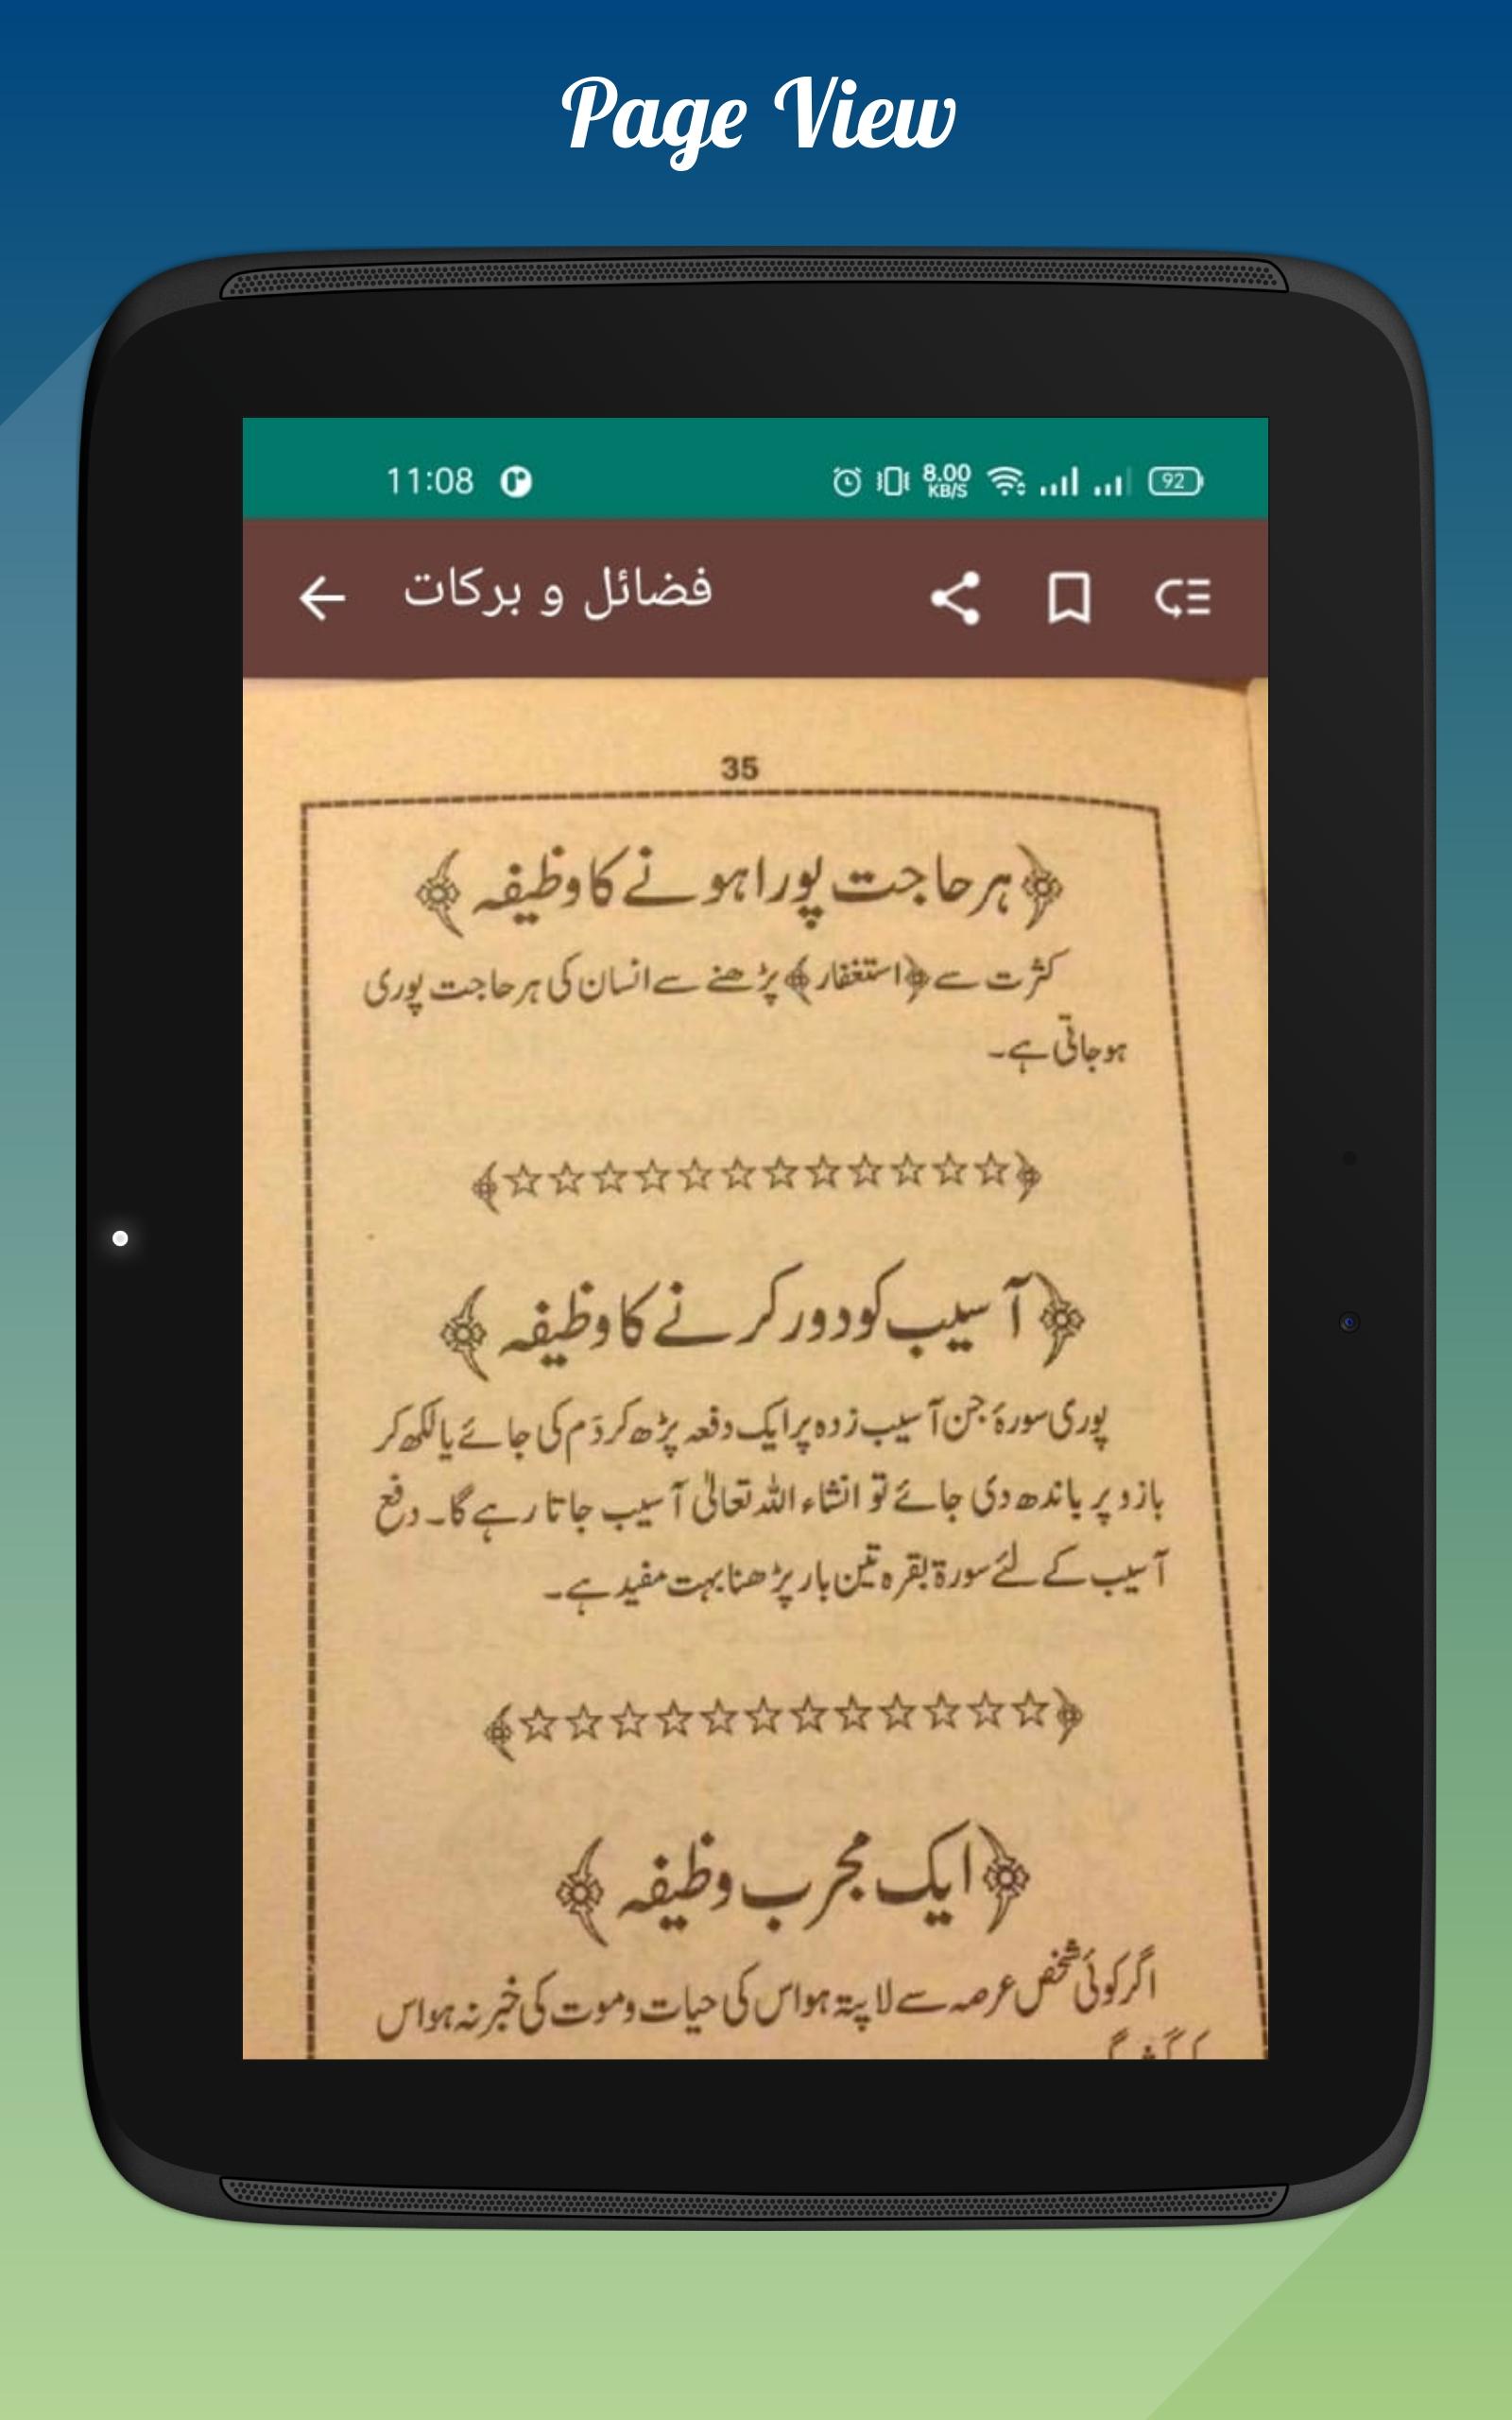 Page View
11:08
8.00
KB/S
92
فضائل و برکات
35
﴿ہر حاجت پورا ہونے کا وظیفہ﴾
کثرت سے ﴿استغفار﴾ پڑھنے سے انسان کی ہر حاجت پوری
ہو جاتی ہے۔
﴿☆☆☆☆☆☆☆☆☆☆☆☆﴾
﴿آسیب کو دور کرنے کا وظیفہ﴾
پوری سورۂ جن آسیب زدہ پر ایک دفعہ پڑھ کر دَم کی جائے یا لکھ کر
بازو پر باندھ دی جائے تو انشاء اللہ تعالیٰ آسیب جاتا رہے گا۔ دفع
آسیب کے لئے سورۃ بقرہ تین بار پڑھنا بہت مفید ہے۔
﴿☆☆☆☆☆☆☆☆☆☆☆☆﴾
﴿ایک مجرب وظیفہ﴾
اگر کوئی شخص عرصہ سے لا پتہ ہو اس کی حیات و موت کی خبر نہ ہو اس